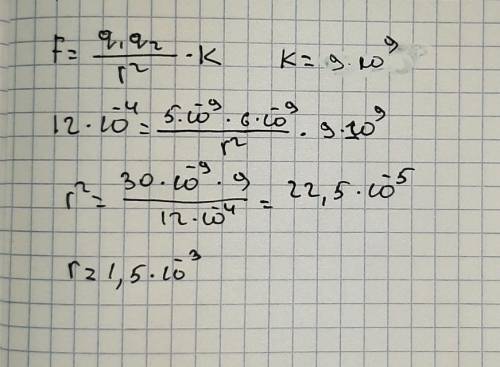 F = q₁q₂/r² · K    K = 9·10⁹
12·10⁻⁴ = 5·10⁻⁹ · 6·10⁻⁹/r² · 9·10⁹
r² = 30·10⁻⁹ · 9/12·10⁻⁴ = 22,5·10⁻⁵
r = 1,5·10⁻³